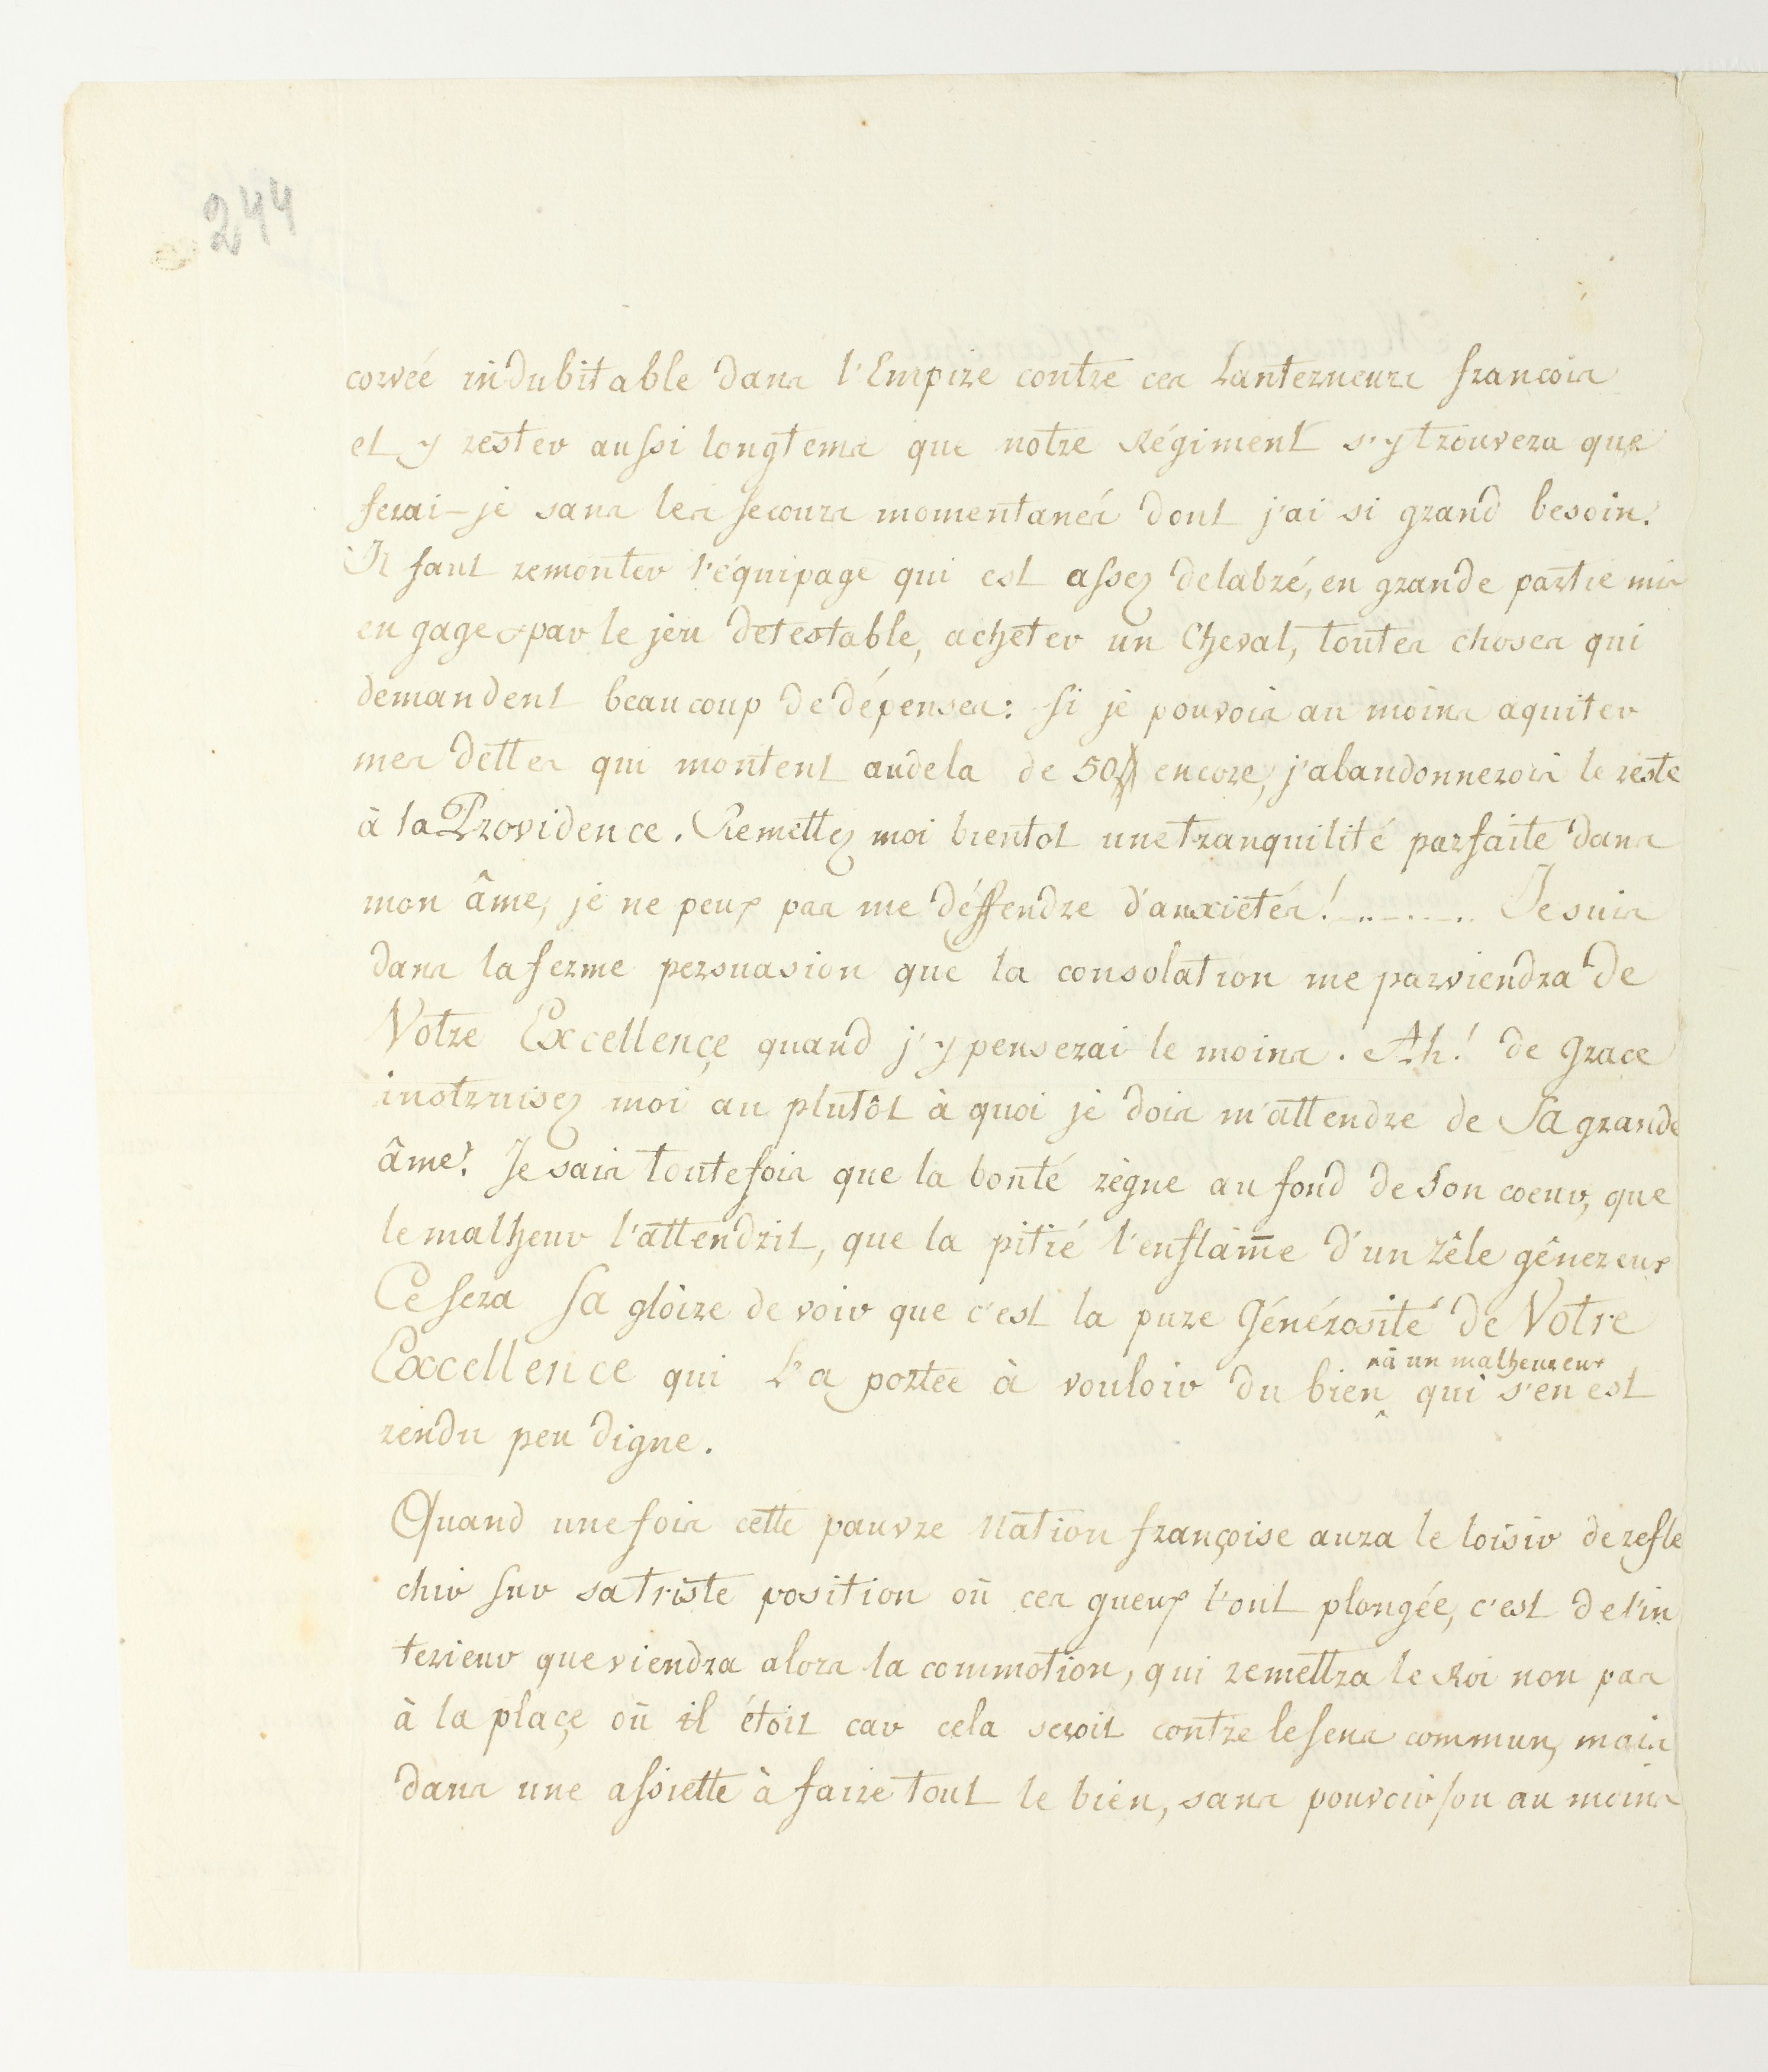 244
corvéé indubitable dans l'Empire contre ces Lanterneurs francois
et y rester aussi longtems que notre Régiment s'y trouvera que
ferai-je sans les secours momentanés dont j'ai si grand besoin.
Il faut remonter l'équipage qui est assez delabré, en grande partie mis
en gage par le jeu detestable, acheter un Cheval, toutes choses qui
demandent beaucoup de dépenses: si je pouvois au moins aquiter
mes dettes qui montent audela de 50 encore, j'abandonnerois le reste
à la Providence. Remettez moi bientot une tranquilité parfaite dans
mon âme, je ne peux pas me déffendre d'anxietés! ....... Je suis
dans la ferme persuasion que la consolation me parviendra de
Votre Excellençe quand j'y penserai le moins. Ah! de grace
instruisez moi au plutôt à quoi je dois m'attendre de Sa grande
âme! Je sais toutefois que la bonté règne au fond de Son coeur, que
le malheur l'attendrit, que la pitié l'enflam̄e d'un zêle gênereux
Ce sera Sa glòire de voir que c'est la pure Générosité de Votre
Excellence qui L'a portée à vouloir du bien à un malheureux qui s'en est
rendu peu digne.
Quand une fois cette pauvre Nation françoise aura le loisir de refle
chir sur sa triste position où ces gueux l'ont plongée, c'est de l'in
terieur que viendra alors la commotion, qui remettra le Roi non pas
à la plaçe où il étoit car cela seroit contre le sens commun, mais
dans une assiette à faire tout le bien, sans pouvoir/ou au moins